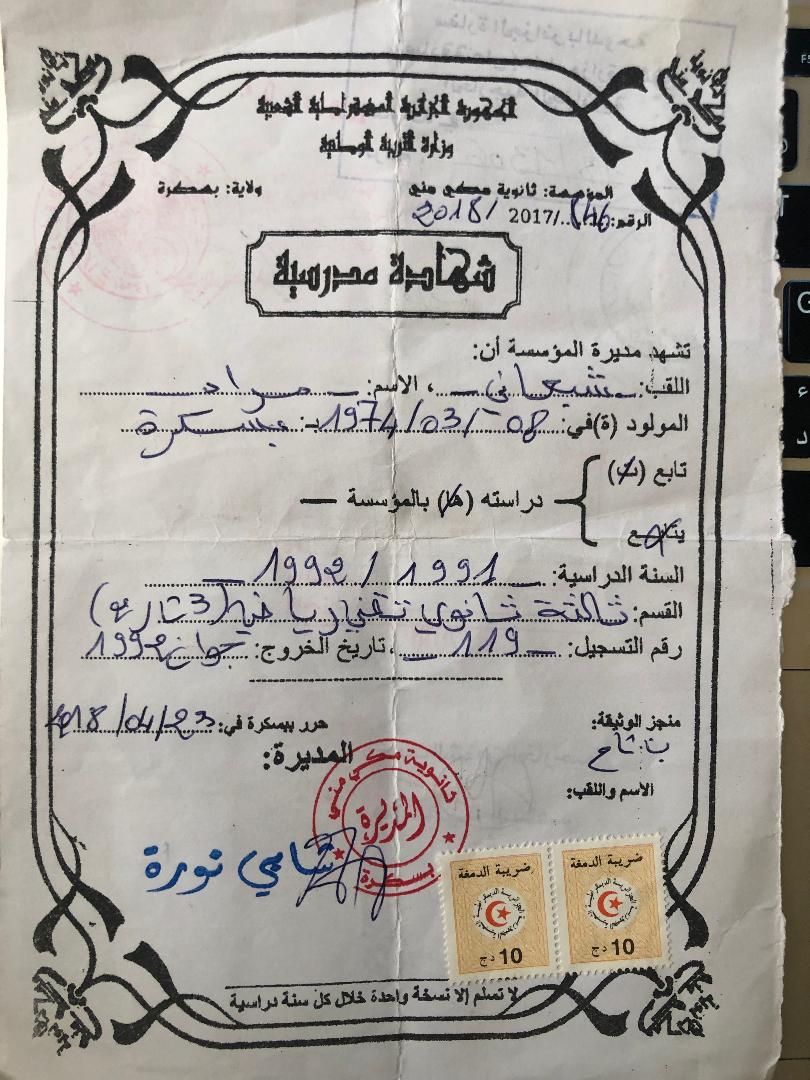 الجمهورية الجزائرية الديمقراطية الشعبية
وزارة التربية الوطنية
المؤسسة: ثانوية مكي مني ولاية: بسكرة
الرقم: 146/2017/2018
شهادة مدرسية
تشهد مديرة المؤسسة أن:
اللقب: شيعاني، الاسم: مراد
المولود (ة) في: 08-/03/1974 بـ: بسكرة
تابع (ت)
دراسته (ها) بالمؤسسة
يتابع
السنة الدراسية: 1991 / 1992
القسم: ثالثة ثانوي تقني رياضي
رقم التسجيل: 119، تاريخ الخروج: جوان 1992
منجز الوثيقة: حرر ببسكرة في: 2018/04/23
المديرة:
الاسم واللقب:
ثانوية مكي مني
المديرة
بسكرة
شامي نورة
ضريبة الدمغة
10 دج
ضريبة الدمغة
10 دج
لا تسلم إلا نسخة واحدة خلال كل سنة دراسية